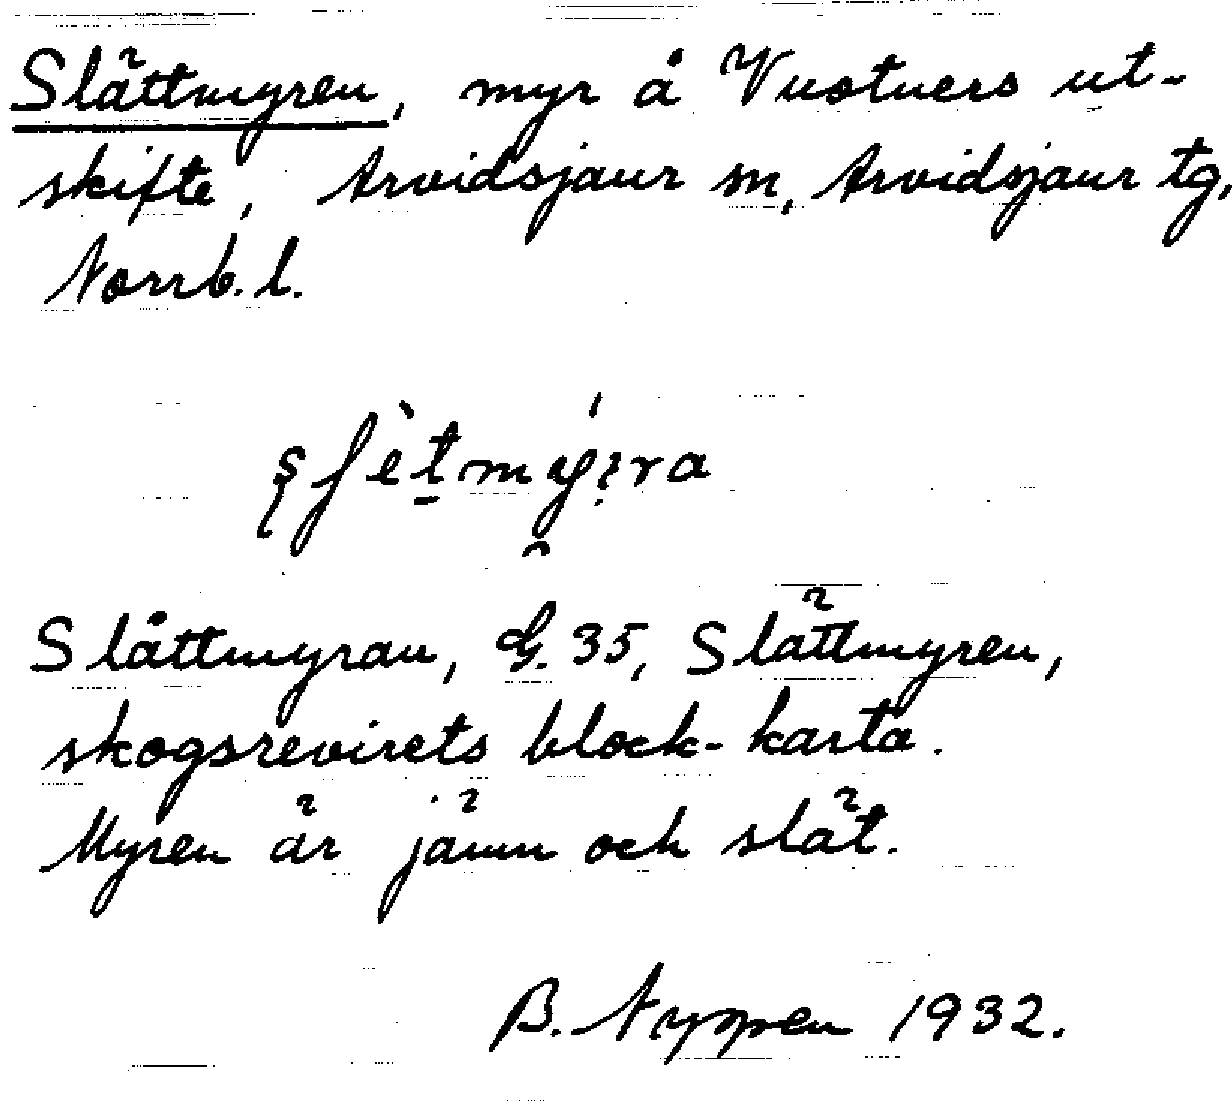 Slättmyren, myr å Vuotners ut-
skifte, Arvidsjaur sn, Arvidsjaur tg,
Norrb. l.
Slåttmyran, G. 35, Slättmyren,
skogsrevirets block-karta.
Myren är jämn och slät.
B. Nyppen 1932.